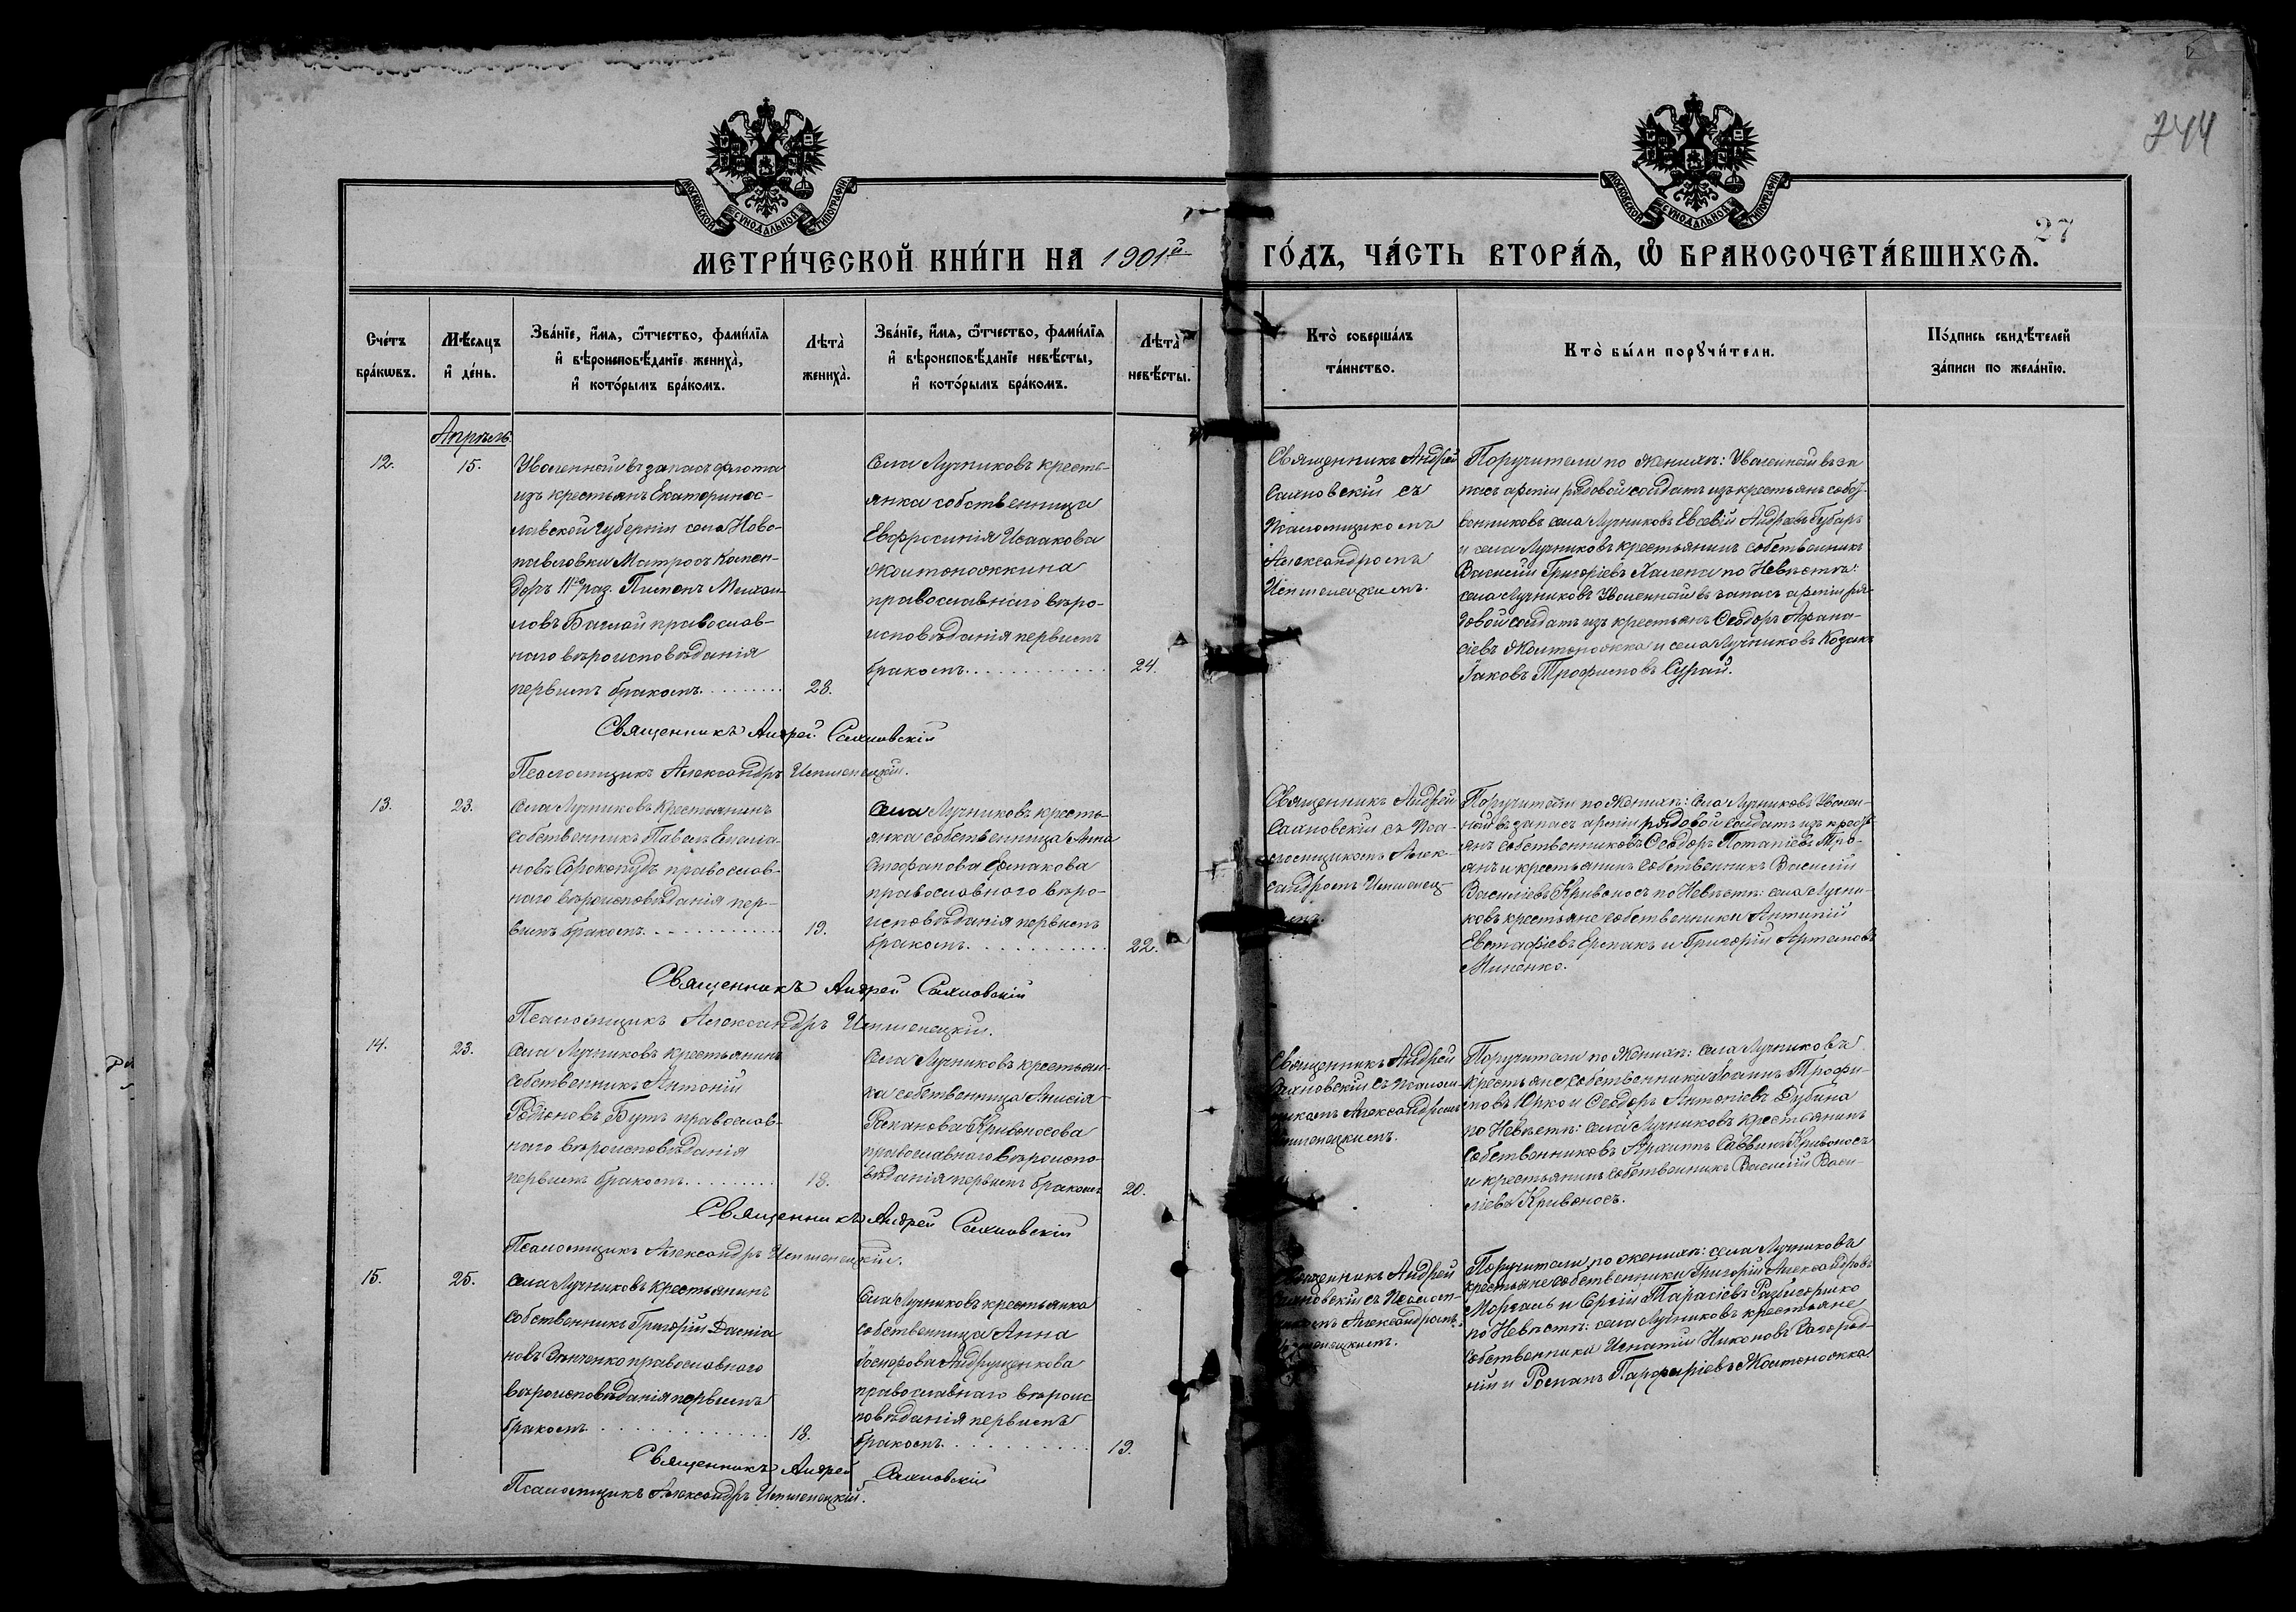 244
27
МОСКОВСКОЙ СѴНОДАЛЬНОЙ ТИПОГРАФІИ
МОСКОВСКОЙ СѴНОДАЛЬНОЙ ТИПОГРАФІИ
МЕТРИ́ЧЕСКОЙ КНИ́ГИ НА 1901й ГО́ДЪ, ЧА́СТЬ ВТОРА́Я, Ѡ҆ БРАКОСОЧЕТА́ВШИХСЯ.
Сче́тъ
бра́кѡвъ.
Мѣ́сяцъ
и҆ де́нь.
Зва́нїе, и҆́мя, ѻ҆́тчество, фами́лїя
и҆ вѣроисповѣ́данїе жениха̀,
и҆ кото́рымъ бра́комъ.
Лѣта̀
жениха̀.
Зва́нїе, и҆́мя, ѻ҆́тчество, фами́лїя
и҆ вѣроисповѣ́данїе невѣ́сты,
и҆ кото́рымъ бра́комъ.
Лѣта̀
невѣ́сты.
Кто̀ соверша́лъ
та́инство.
Кто̀ бы́ли порꙋчи́тели.
По́дпись свидѣ́телей
за́писи по жела́нїю.
Апрѣль.
12.
15.
Уволенной въ запасъ флота
изъ крестьянъ Екатеринос-
лавской губерніи села Ново-
павловки Матросъ Комен-
доръ 11го раз. Пименъ Михаи-
ловъ Баглай православ-
наго вѣроисповѣданія
первымъ бракомъ
28.
Села Лучниковъ кресть-
янка собственница
Евфросинія Исаакова
Жолтоножкина
православнаго вѣро-
исповѣданія первымъ
бракомъ
24.
Священникъ Андрей
Сахновскій съ
Псаломщикомъ
Александромъ
Поручители по женихѣ: Уволенной въ за
пасъ арміи рядовой солдатъ изъ крестьянъ собст-
венниковъ села Лучниковъ Евсевій Андреевъ Губарь
и села Лучниковъ крестьянинъ собственникъ
Василій Григоріевъ Халепа по Невѣстѣ:
села Лучниковъ Уволенной въ запасъ арміи ря-
довой солдатъ изъ крестьянъ Ѳеодоръ Афана-
сіевъ Жолтоножка и села Лучниковъ Козакъ
Іаковъ Трофимовъ
Священникъ Андрей Сахновскій
Псаломщикъ Александръ
13.
23.
Села Лучниковъ Крестьянинъ
собственникъ Павелъ Емелiа-
новъ Сорокопудъ православ-
наго вѣроисповѣданія пер-
вымъ бракомъ
19.
Села Лучниковъ кресть-
янка собственница Анна
Стефанова Ермакова
православнаго вѣро-
исповѣданія первымъ
бракомъ
22.
Священникъ Андрей
Сахновскій съ Пса-
ломщикомъ Алек-
сандромъ
Поручители по Женихѣ: Села Лучниковъ Уволен-
ной въ запасъ арміи рядовой солдатъ изъ кресть-
янъ собственниковъ Ѳеодоръ Потапіевъ Тро-
янъ и крестьянинъ собственникъ Василій
Василіевъ Кривоносъ по Невѣстѣ: села Лучни-
ковъ крестьяне собственники Антипій
Евстафіевъ Ермакъ и Григорій Артемовъ
Миненко.
Священникъ Андрей Сахновскій
Псаломщикъ Александръ
14.
23.
Села Лучниковъ крестьянинъ
собственникъ Антоній
Родіоновъ Бутъ православ-
наго вѣроисповѣданія
первымъ бракомъ
18.
Села Лучниковъ крестьян-
ка собственница Анисія
Кривоносова
православнаго вѣроиспо-
вѣданія первымъ бракомъ
20.
Священникъ Андрей
Сахновскій съ Псалом-
щикомъ Александромъ
Поручители по Женихѣ: села Лучниковъ
Крестьяне собственники Іоаннъ Трофи-
мовъ Юрко и Ѳеодоръ Антоніевъ Дубина
по Невѣстѣ: села Лучниковъ крестьянинъ
собственниковъ Саввинъ Кривоносъ
и крестьянинъ собственникъ Василій Васи-
ліевъ Кривоносъ.
Священникъ Андрей Сахновскій
Псаломщикъ Александръ
15.
25.
Села Лучниковъ крестьянинъ
собственникъ Григорій Даміа
новъ православнаго
вѣроисповѣданія первымъ
бракомъ
18.
Села Лучниковъ крестьянка
собственница Анна
Іосифова Андрущенкова
православнаго вѣроис
повѣданія первымъ
бракомъ
19.
Священникъ Андрей
Сахновскій съ Псалом-
щикомъ Александромъ
Поручители по женихѣ: села Лучниковъ
крестьяне собственники Григорій Александровъ
Моргаль и Сергій Тарасіевъ
по Невѣстѣ: села Лучниковъ крестьяне
собственники Игнатій Никоновъ
ній и Романъ Парфиріевъ Жолтоножка.
Священникъ Андрей Сахновскій
Псаломщикъ Александръ